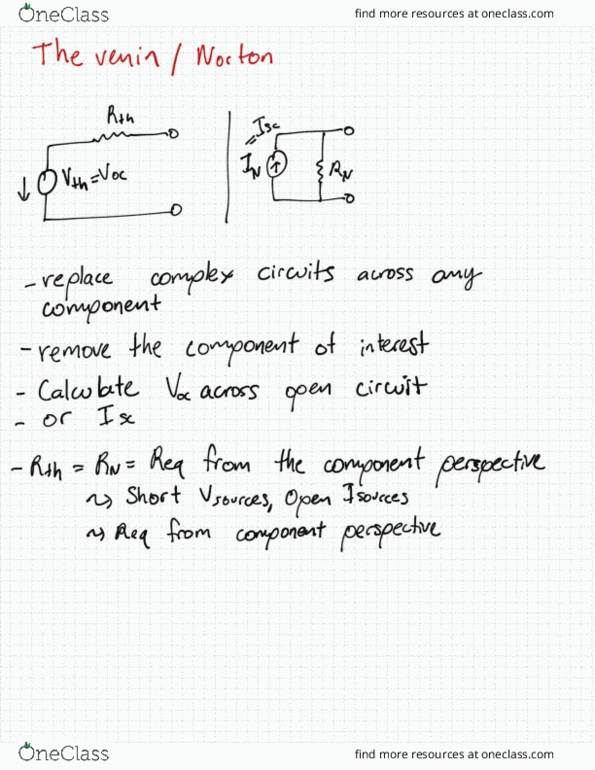 OneClass
find more resources at oneclass.com
The venin / Norton
Rth
Vth = Voc
= Isc
IN
RN
- replace complex circuits across any
component
- remove the component of interest
- Calculate Voc across open circuit
- or Isc
- Rth = RN = Req from the component perspective
~> Short Vsources, Open Isources
~> Req from component perspective
OneClass
find more resources at oneclass.com